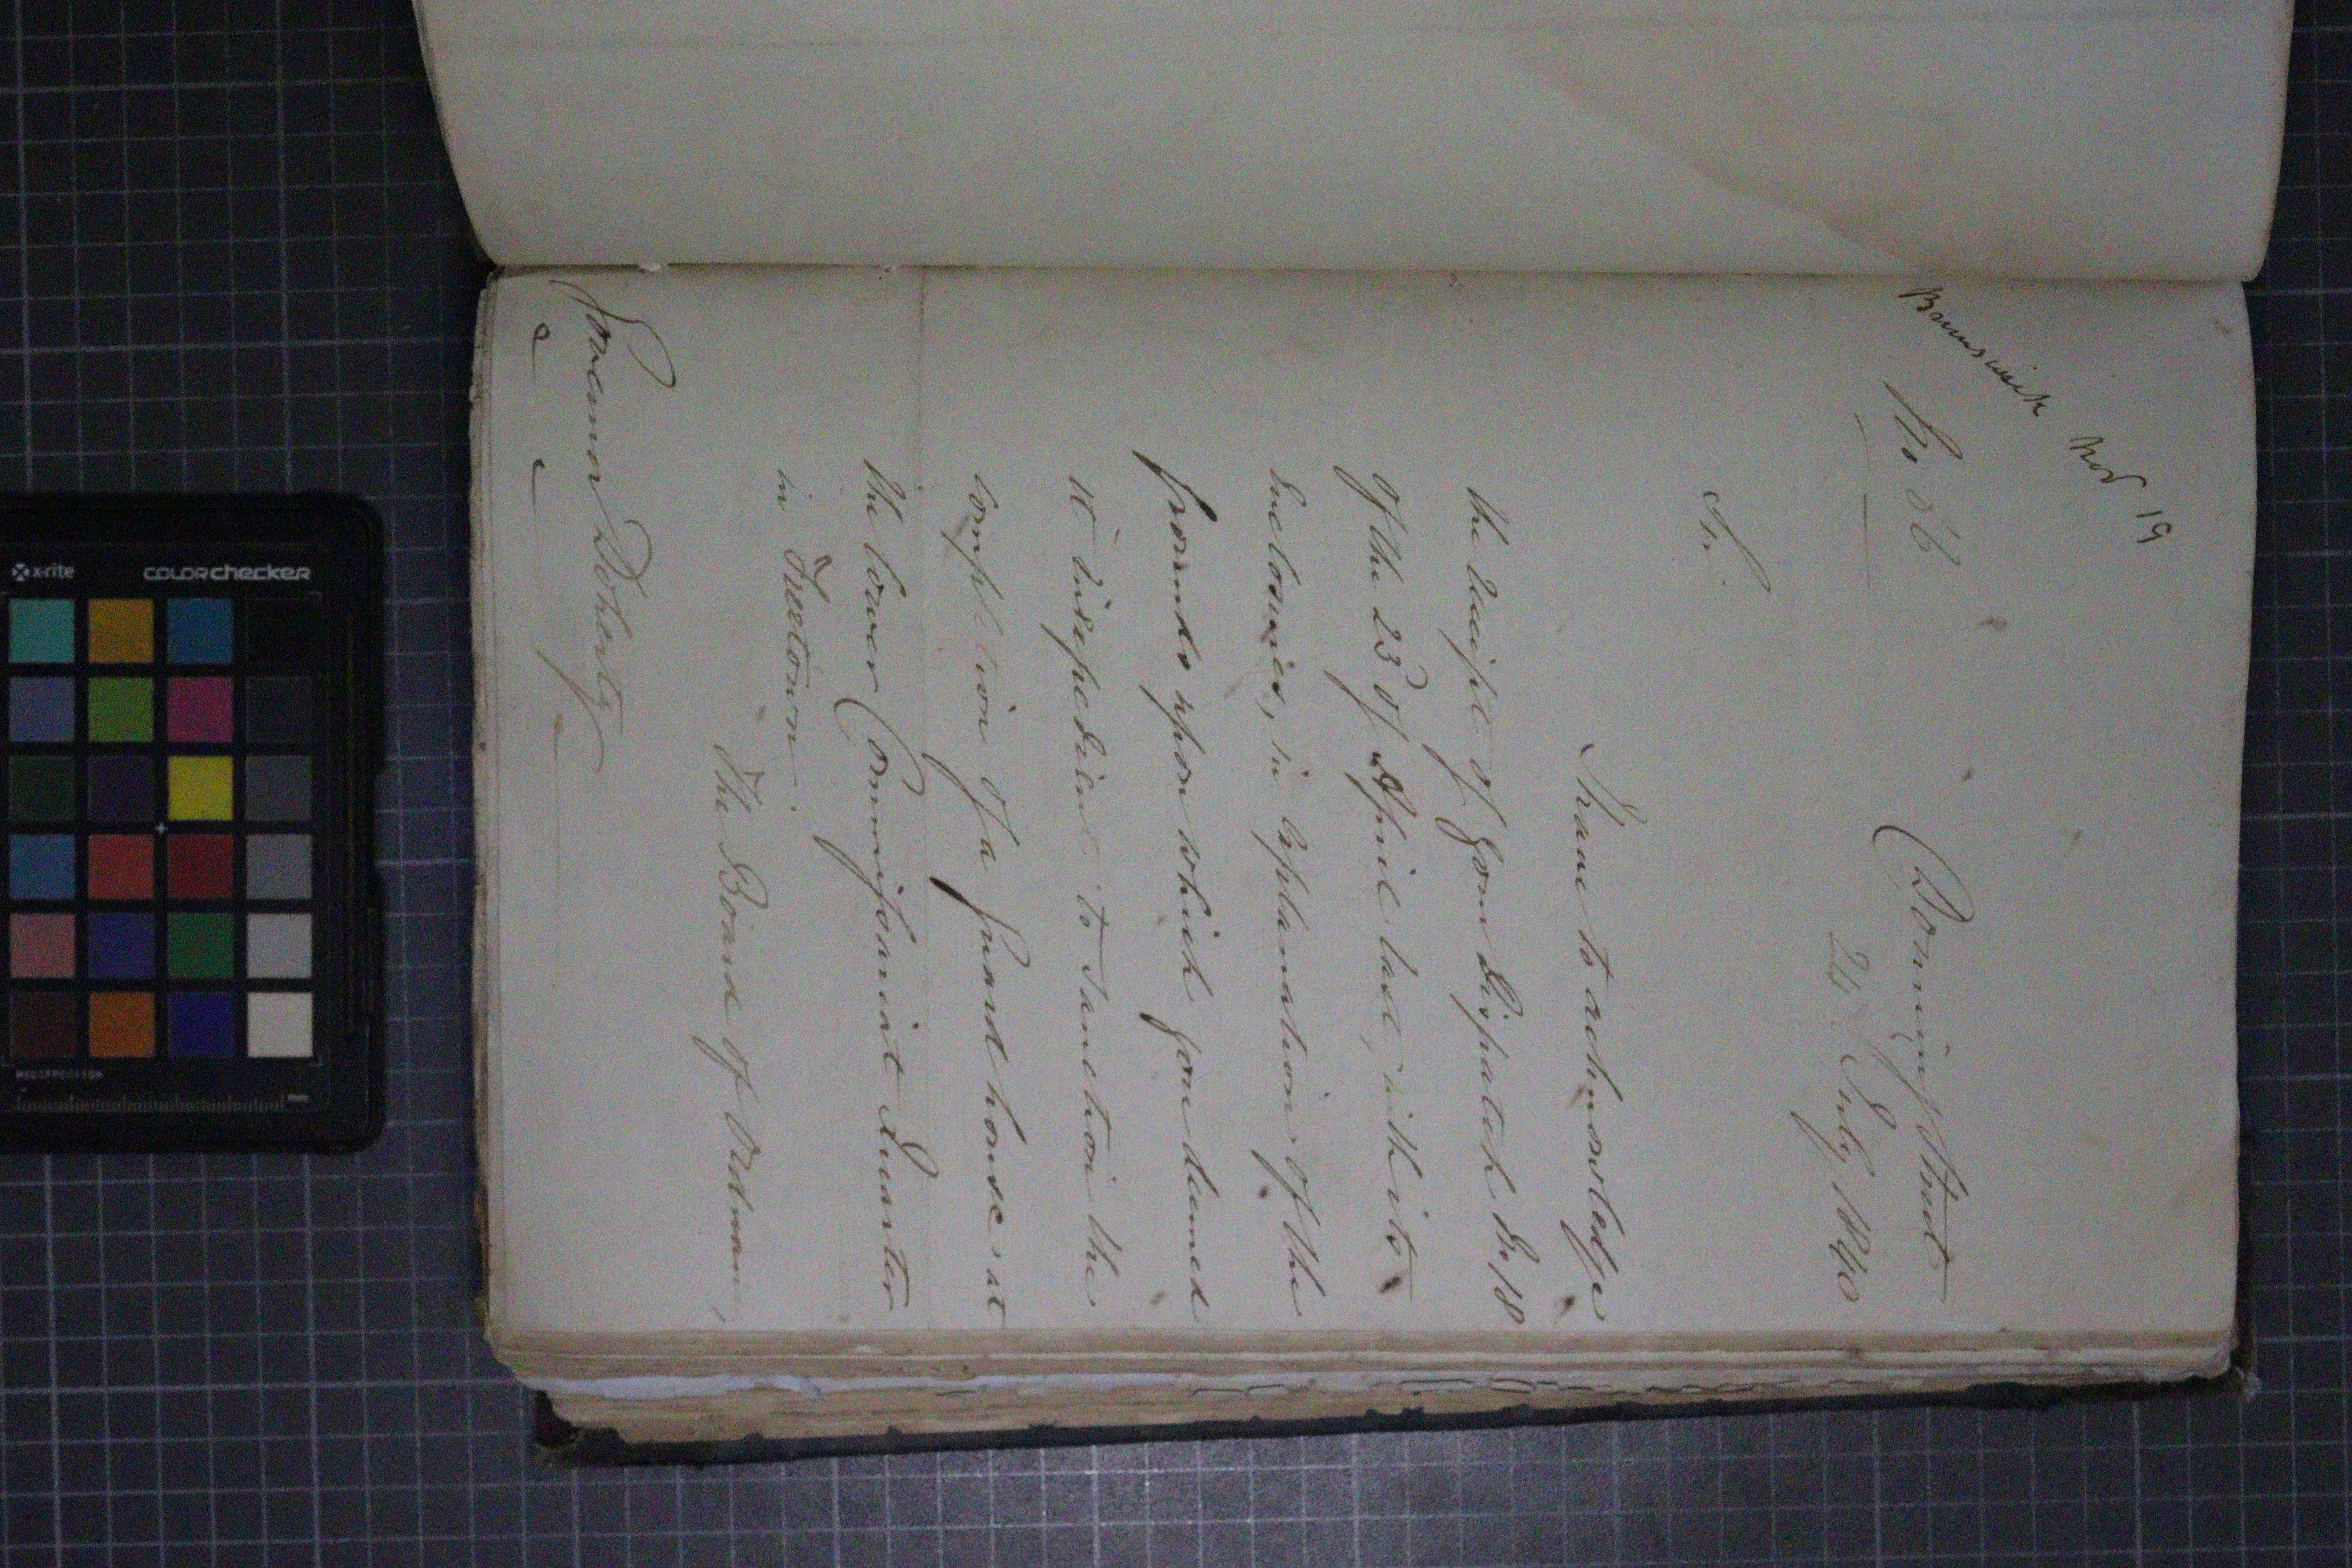 Brunswick Nov 19
No 86
Downing Street
24 July 1840
Sir,
I have to acknowledge
the receipt of your Dispatch No 18
of the 23d of April last, with its
Enclosures, in explanation of the
grounds upon which you deemed
it inexpedient to sanction the
completion of a Guard house at
the lower Commissariat Quarter
in Freetown.
The Board of Ordnan
Governor Doherty
&c &c
x-rite colorchecker